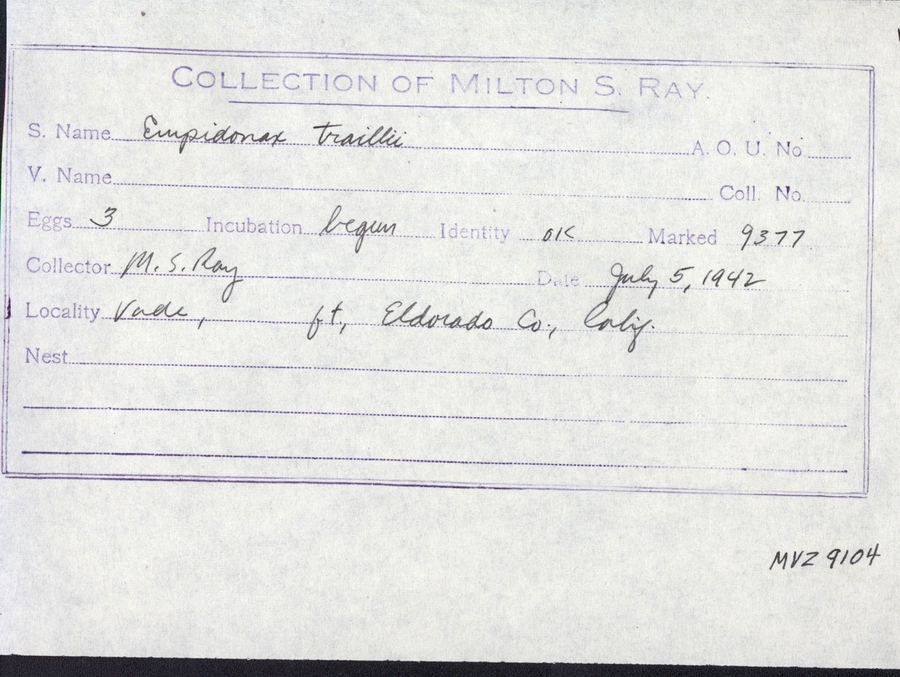 COLLECTION OF MILTON S. RAY.
S. Name Empidonax traillii A. O. U. No.
V. Name Coll. No.
Eggs 3 Incubation begun Identity OK Marked 9377
Collector M. S. Ray Date July 5, 1942
Locality Vade, ft., Eldorado Co., Calif.
Nest
MVZ 9104